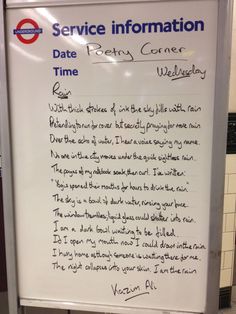 UNDERGROUND
Service information
Date Poetry Corner
Time Wednesday
Rain
With thick strokes of ink the sky fills with rain.
Pretending to run for cover but secretly praying for more rain.
Over the echo of water, I hear a voice saying my name.
No one in the city moves under the quick sightless rain.
The pages of my notebook soak, then curl. I've written:
"Yogis opened their mouths for hours to drink the rain."
The sky is a bowl of dark water, rinsing your face.
The window trembles; liquid glass could shatter into rain.
I am a dark bowl waiting to be filled.
If I open my mouth now, I could drown in the rain.
I hurry home as though someone is waiting there for me.
The night collapses into your skin. I am the rain.
Kazim Ali